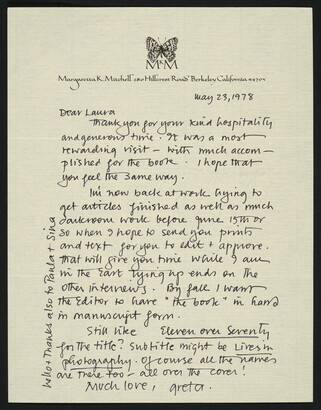 M&M
Margaretta K. Mitchell 280 Hillcrest Road Berkeley California 94705
May 23, 1978
Dear Laura
Thank you for your kind hospitality
and generous time. It was a most
rewarding visit — with much accom-
plished for the book. I hope that
you feel the same way.
I'm now back at work trying to
get articles finished as well as much
darkroom work before June 15th or
so when I hope to send you prints
and text for you to edit & approve.
That will give you time while I am
in the East tying up ends on the
other interviews. By fall I want
the Editor to have "the book" in hand
in manuscript form.
Still like Eleven over Seventy
for the title? Subtitle might be Lives in
photography. Of course all the names
are there too — all over the cover!
Much love, Greta.
hello & Thanks also to Paula & Sina